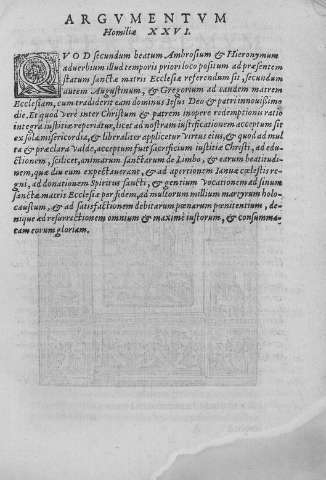 ARGVMENTVM
Homiliæ XXVI.
QVOD secundum beatum Ambrosium & Hieronymum
aduerbium illud temporis priori loco positum ad præsentem
statum sanctæ matris Ecclesiæ referendum sit, secundum
autem Augustinum, & Gregorium ad eandem matrem
Ecclesiam, cum tradiderit eam dominus Iesus Deo & patri nouissimo
die. Et quod verè inter Christum & patrem in opere redemptionis ratio
integra iustitiæ reperitur, licet ad nostram iustificationem acceptum sit
ex sola misericordia, & liberaliter applicetur virtus eius, & quod ad mul
ta & præclara valde, acceptum fuit sacrificium iustitiæ Christi, ad edu-
ctionem, scilicet, animarum sanctarum de Limbo, & earum beatitudi-
nem, quæ diu eam expectauerant, & ad apertionem Ianuæ cœlestis re-
gni, ad donationem Spiritus sancti, & gentium Vocationem ad sinum
sanctæ matris Ecclesiæ per fidem, ad multorum millium martyrum holo-
caustum, & ad satisfactionem debitarum pœnarum pœnitentium, de-
nique ad resurrectionem omnium & maximè iustorum, & consumma-
tam eorum gloriam.